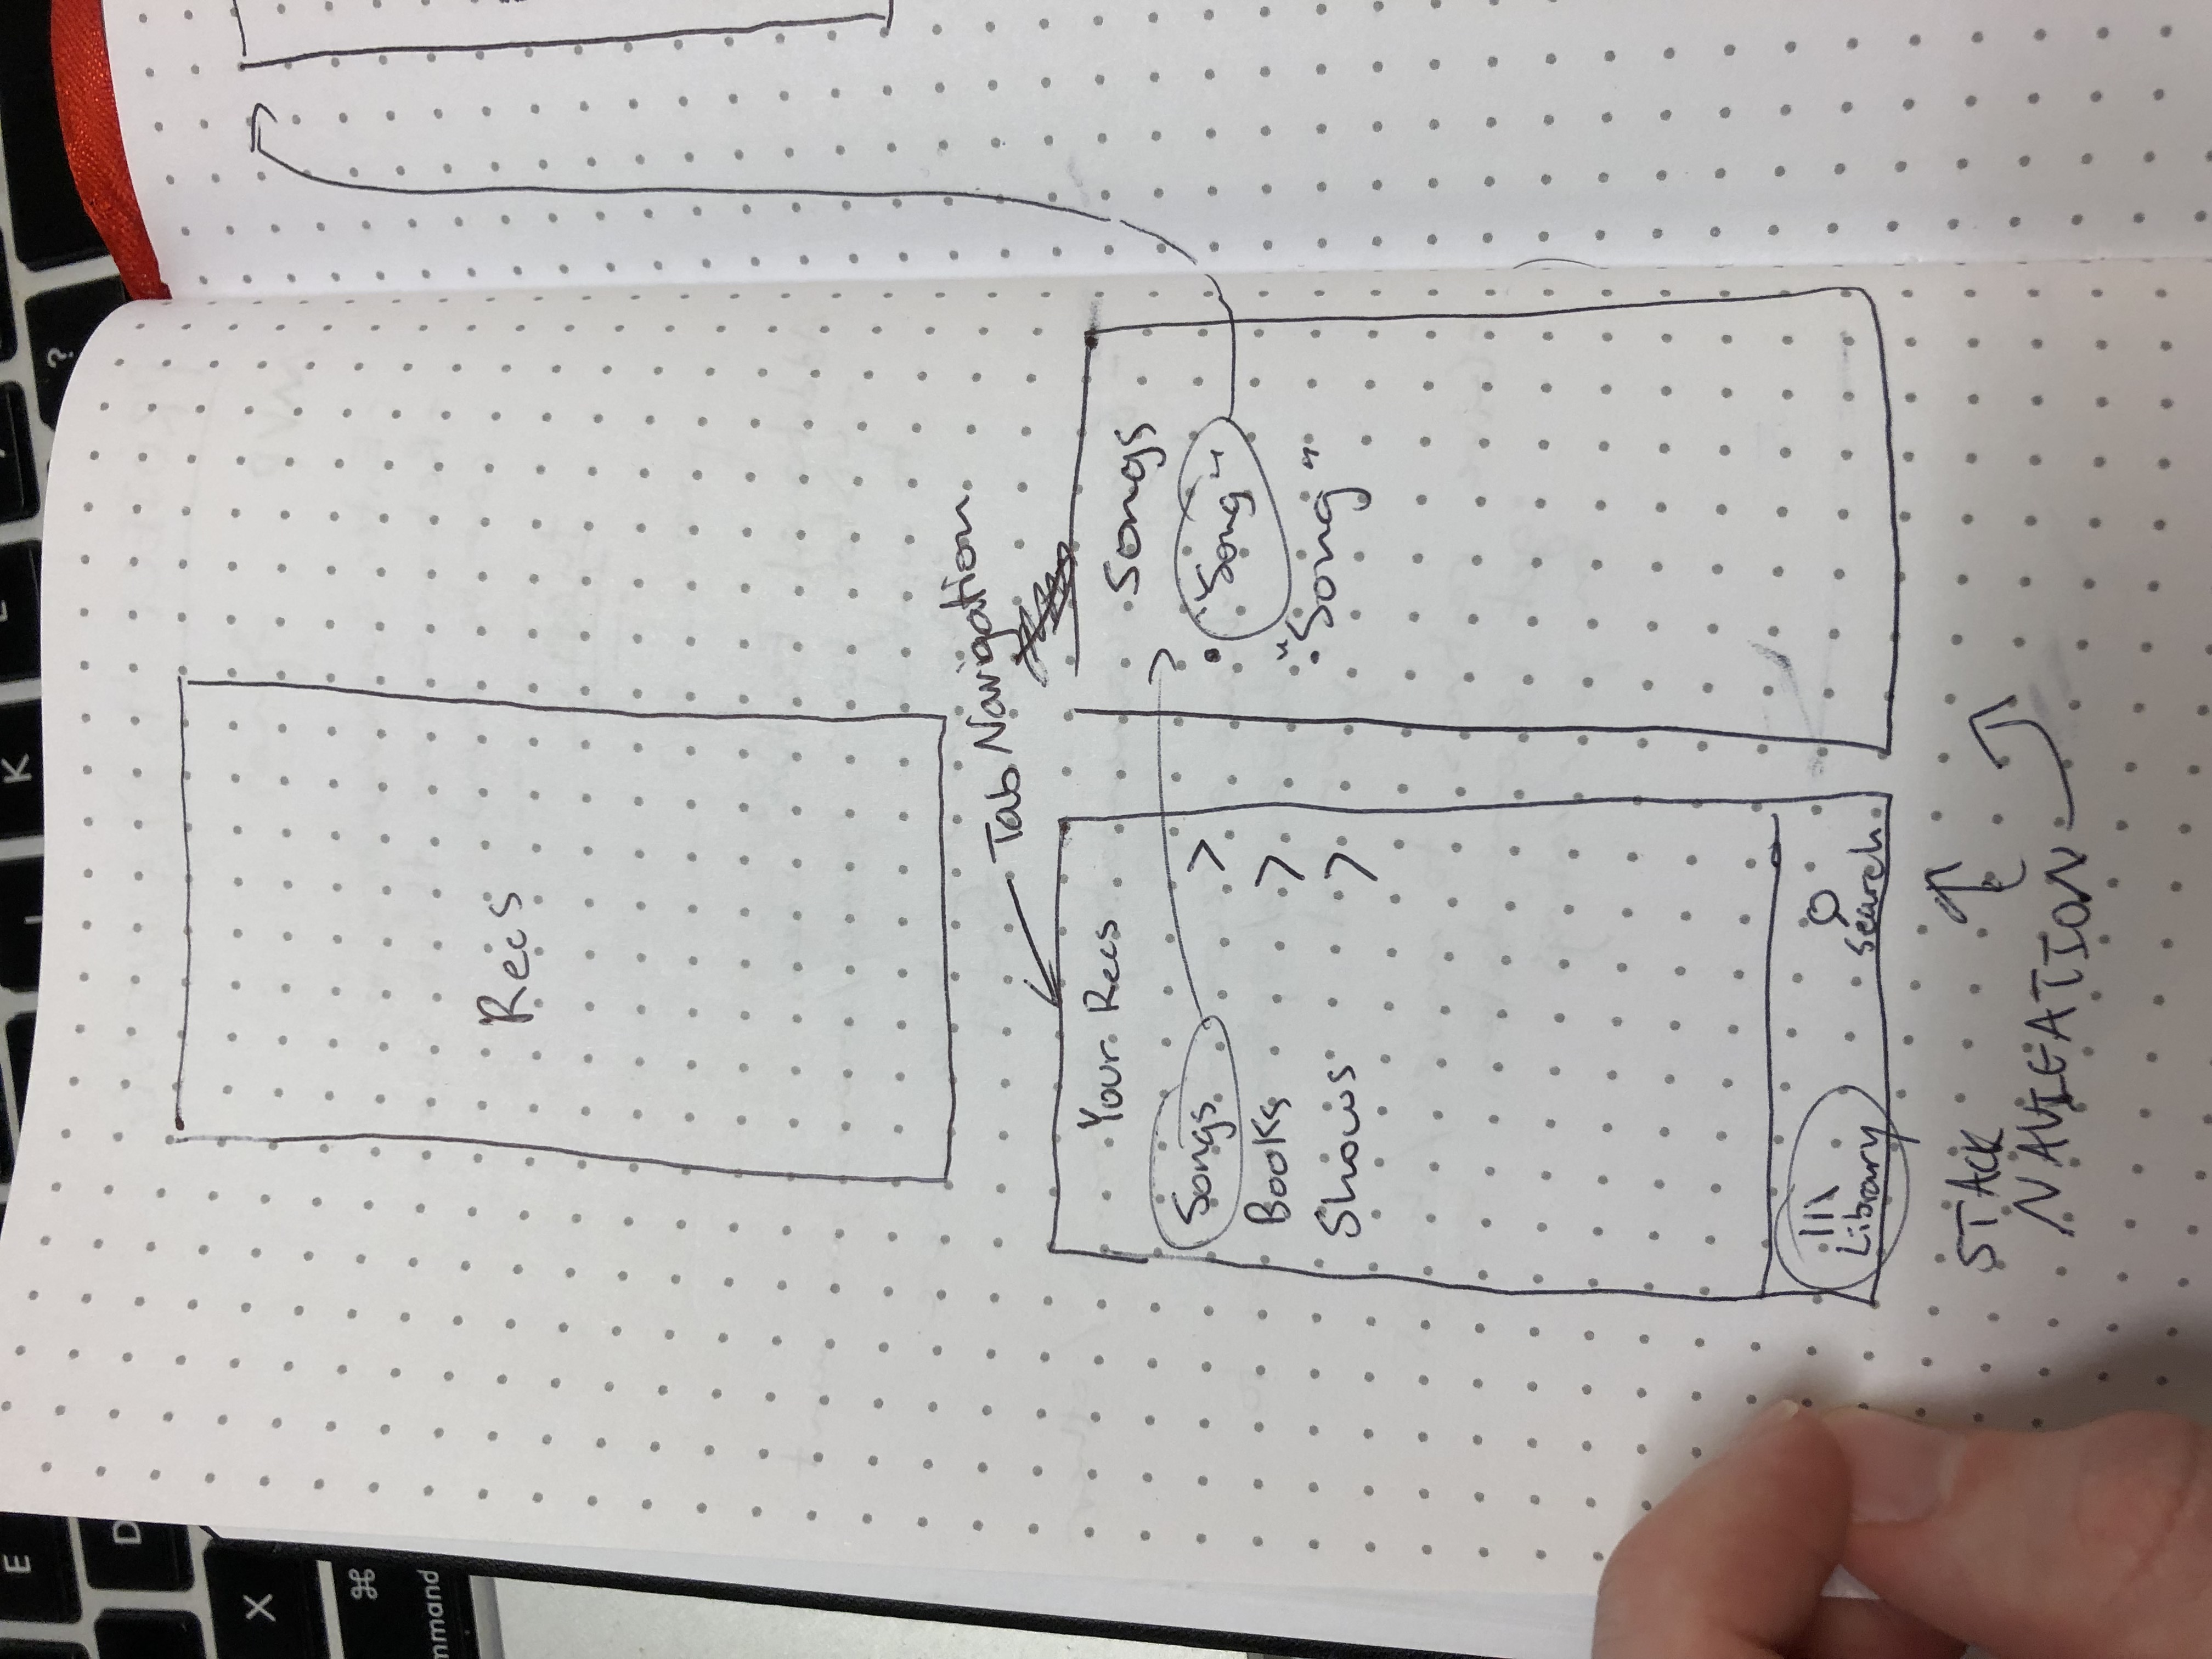 E
K
L
?
D
X
⌘
mmand
Recs
Tab Navigation
Your Recs
Songs >
Books >
Shows >
Library
Search
Songs
• "Song"
• "Song"
STACK
NAVIGATION